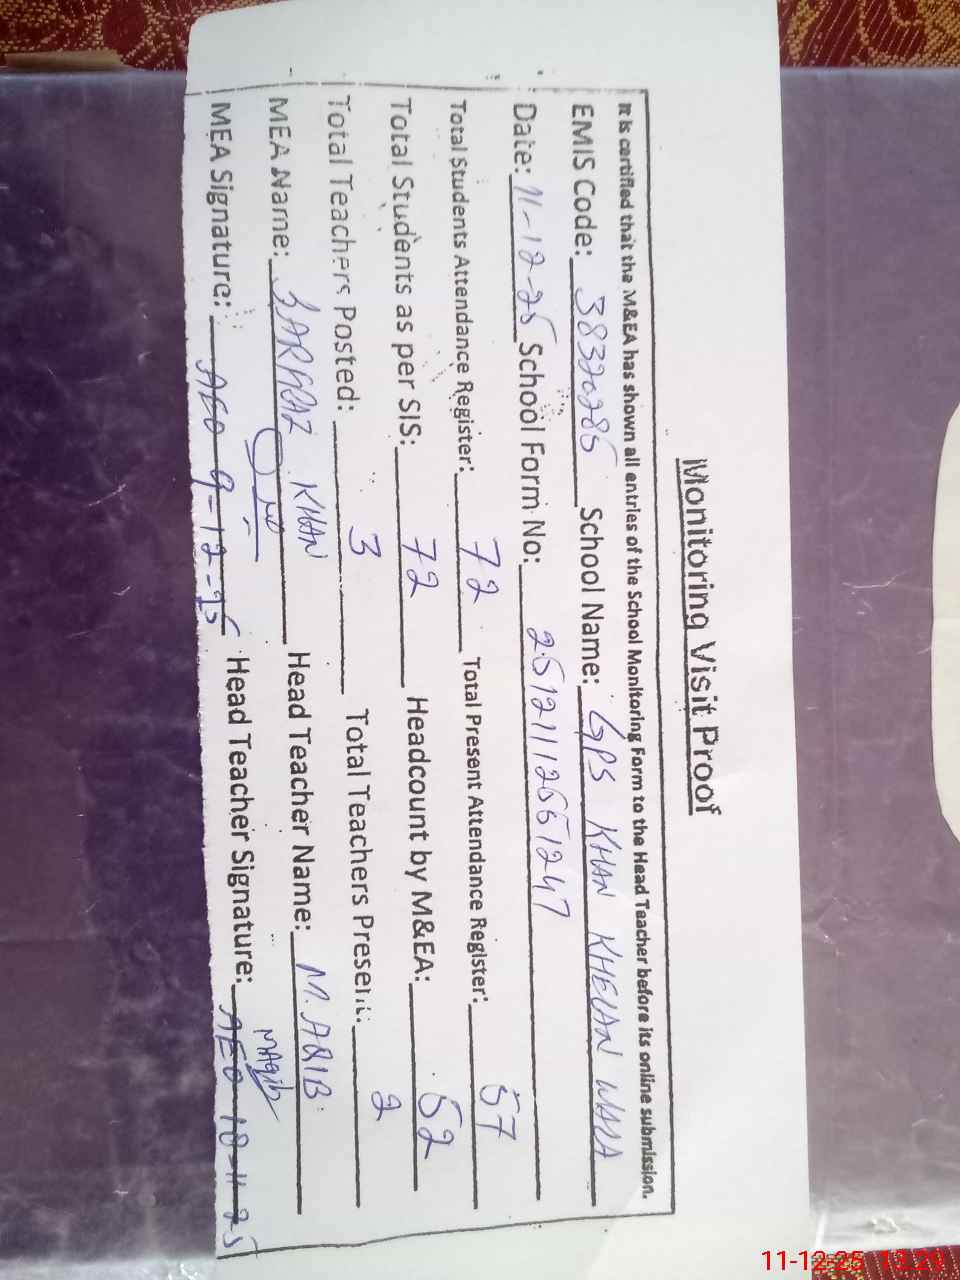 Monitoring Visit Proof
It is certified that the M&EA has shown all entries of the School Monitoring Form to the Head Teacher before its online submission.
EMIS Code: 38320285 School Name: GPS KHAN KHELAN WALA
Date: 11-12-25 School Form No: 25121112551247
Total Students Attendance Register: 72 Total Present Attendance Register: 57
Total Students as per SIS: 72 Headcount by M&EA: 52
Total Teachers Posted: 3 Total Teachers Present: 2
MEA Name: SARFRAZ KHAN Head Teacher Name: M. AQIB
MEA Signature: AEO 9-12-25 Head Teacher Signature: MAqib AEO 18-11-25
11-12-25 13:29